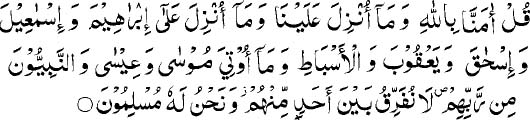 قُلْ اٰمَنَّا بِاللّٰهِ وَ مَاۤ اُنْزِلَ عَلَيْنَا وَ مَاۤ اُنْزِلَ عَلٰۤى اِبْرٰهِيْمَ وَ اِسْمٰعِيْلَ
وَ اِسْحٰقَ وَ يَعْقُوْبَ وَ الْاَسْبَاطِ وَ مَاۤ اُوْتِيَ مُوْسٰى وَ عِيْسٰى وَ النَّبِيُّوْنَ
مِنْ رَّبِّهِمْ ۪ لَا نُفَرِّقُ بَيْنَ اَحَدٍ مِّنْهُمْ ؗ وَ نَحْنُ لَهٗ مُسْلِمُوْنَ ۝